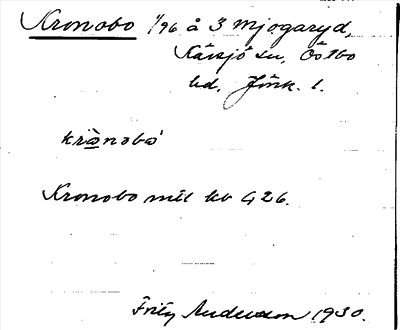 Kronobo 1/96 å 3 Mjogaryd,
Kävsjö sn, Östbo
hd, Jönk. l.
krò̱nobó
Kronobo mtl kv G 26.
Fritz Anderson 1930.